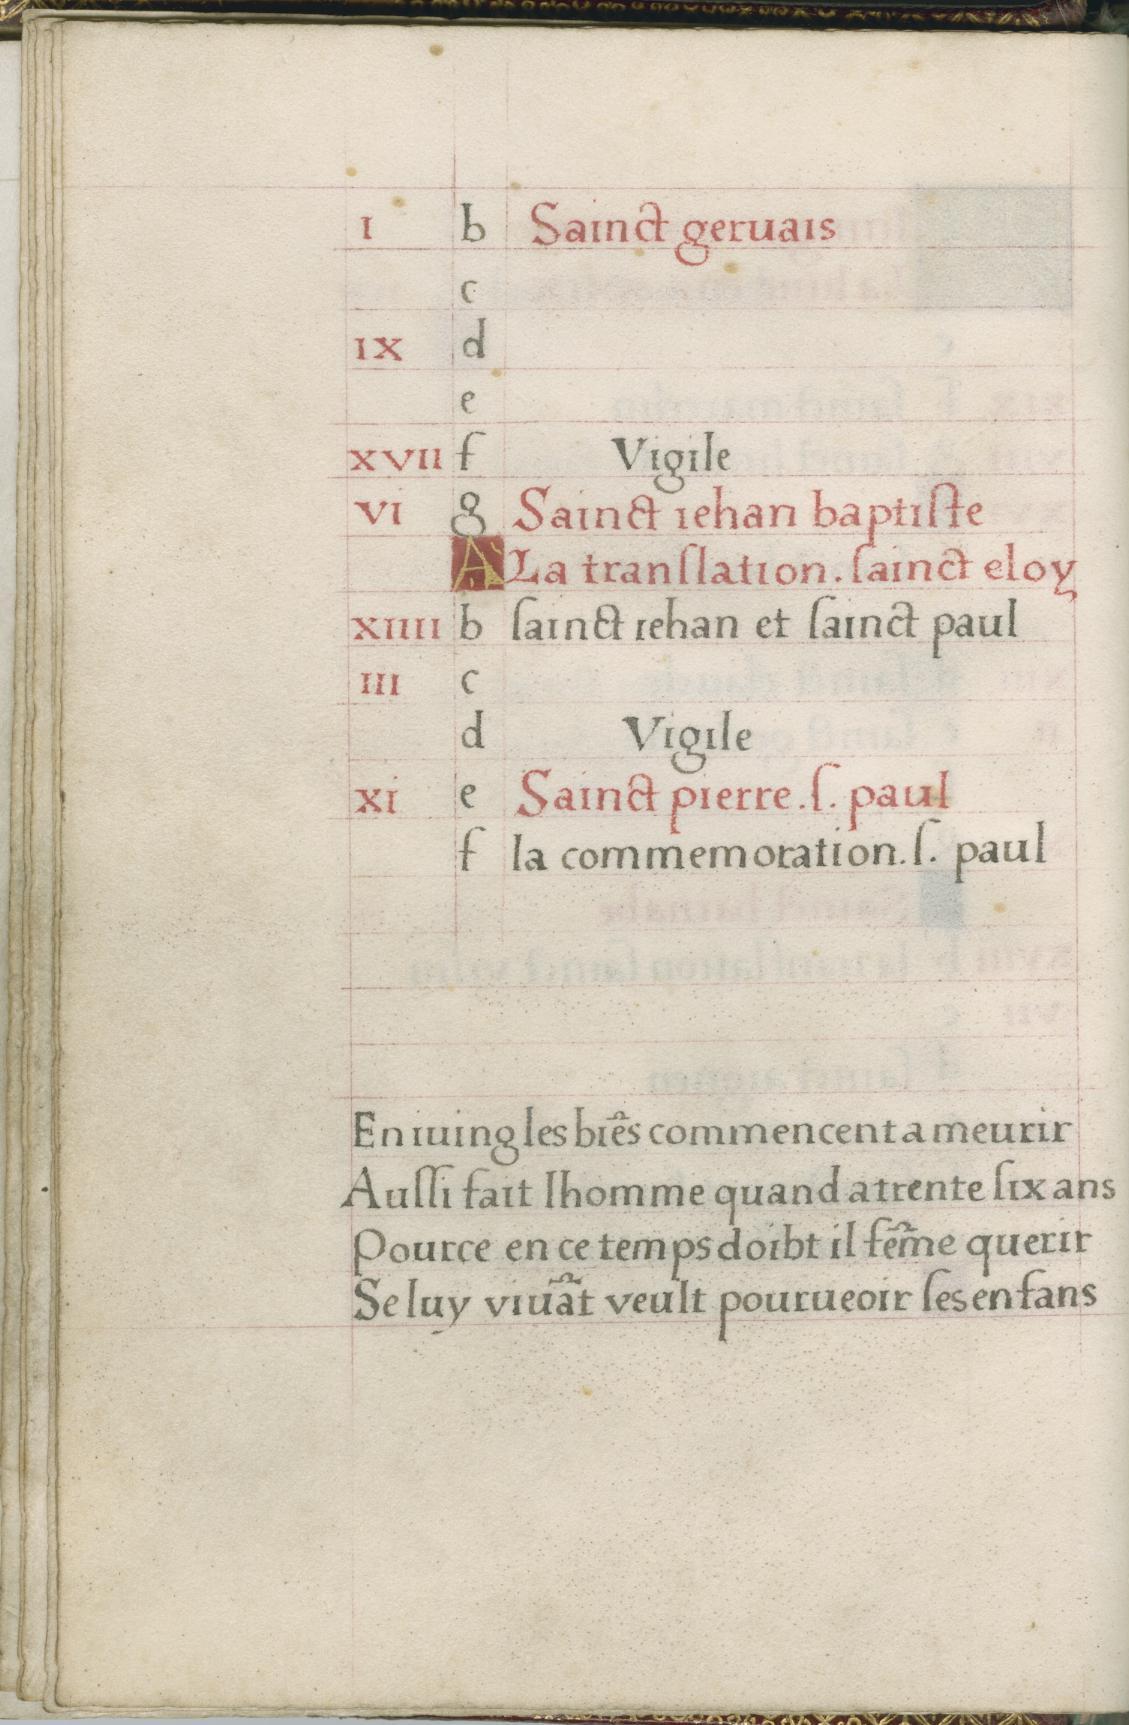 I b Sainct geruais
c
IX d
e
XVII f Vigile
VI g Sainct iehan baptiſte
A La tranſlation . ſainct eloy
XIIII b ſainct iehan et ſainct paul
III c
d Vigile
XI e Sainct pierre . ſ . paul
f la commemoration . ſ . paul
En iuing les biẽs commencent a meurir
Auſſi fait lhomme quand a trente ſix ans
Pource en ce temps doibt il fẽme querir
Se luy viuãt veult pourueoir ſes enfans